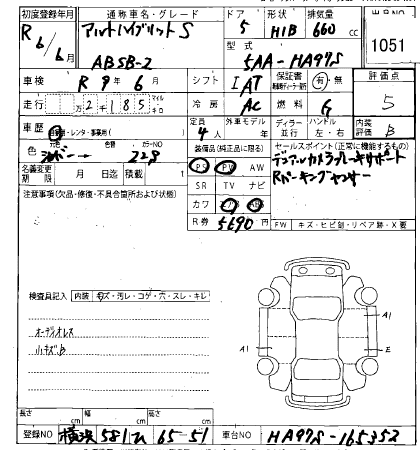 初度登録年月 通称車名・グレード ドア 形状 排気量 出品NO
R 6/6 月 アルトハイブリットS 5 HIB 660 CC
型式 1051
AB5B-2 5AA-HA97S
車検 R 9年 6月 シフト IAT 保証書 有・無 評価点
走行 2,185 マイル キロ 冷房 AC 燃料 G 5
車歴 自家用・レンタ・事業用( ) 定員 4人 外車モデル 年 ディーラー 並行 ハンドル 左・右 内装評価 B
色 元色 シルバー 色替 カラーNO 228 装備品(純正品に限る) セールスポイント(正常に機能するもの)
名義変更期限 月 日迄 積載 t PS PW AW デュアルカメラブレーキサポート
注意事項(欠品・修復・不具合箇所および状態) SR TV ナビ Rパーキングセンサー
カワ エアB ABS
R券 5690円 FW キズ・ヒビ割・リペア跡・X要
検査員記入 内装 キズ・汚レ・コゲ・穴・スレ・キレ
オーディオレス
小キズ
A1
A1 E
長さ cm 幅 cm 高さ cm
登録NO 横浜 581 ひ 65-51 車台NO HA97S-165352